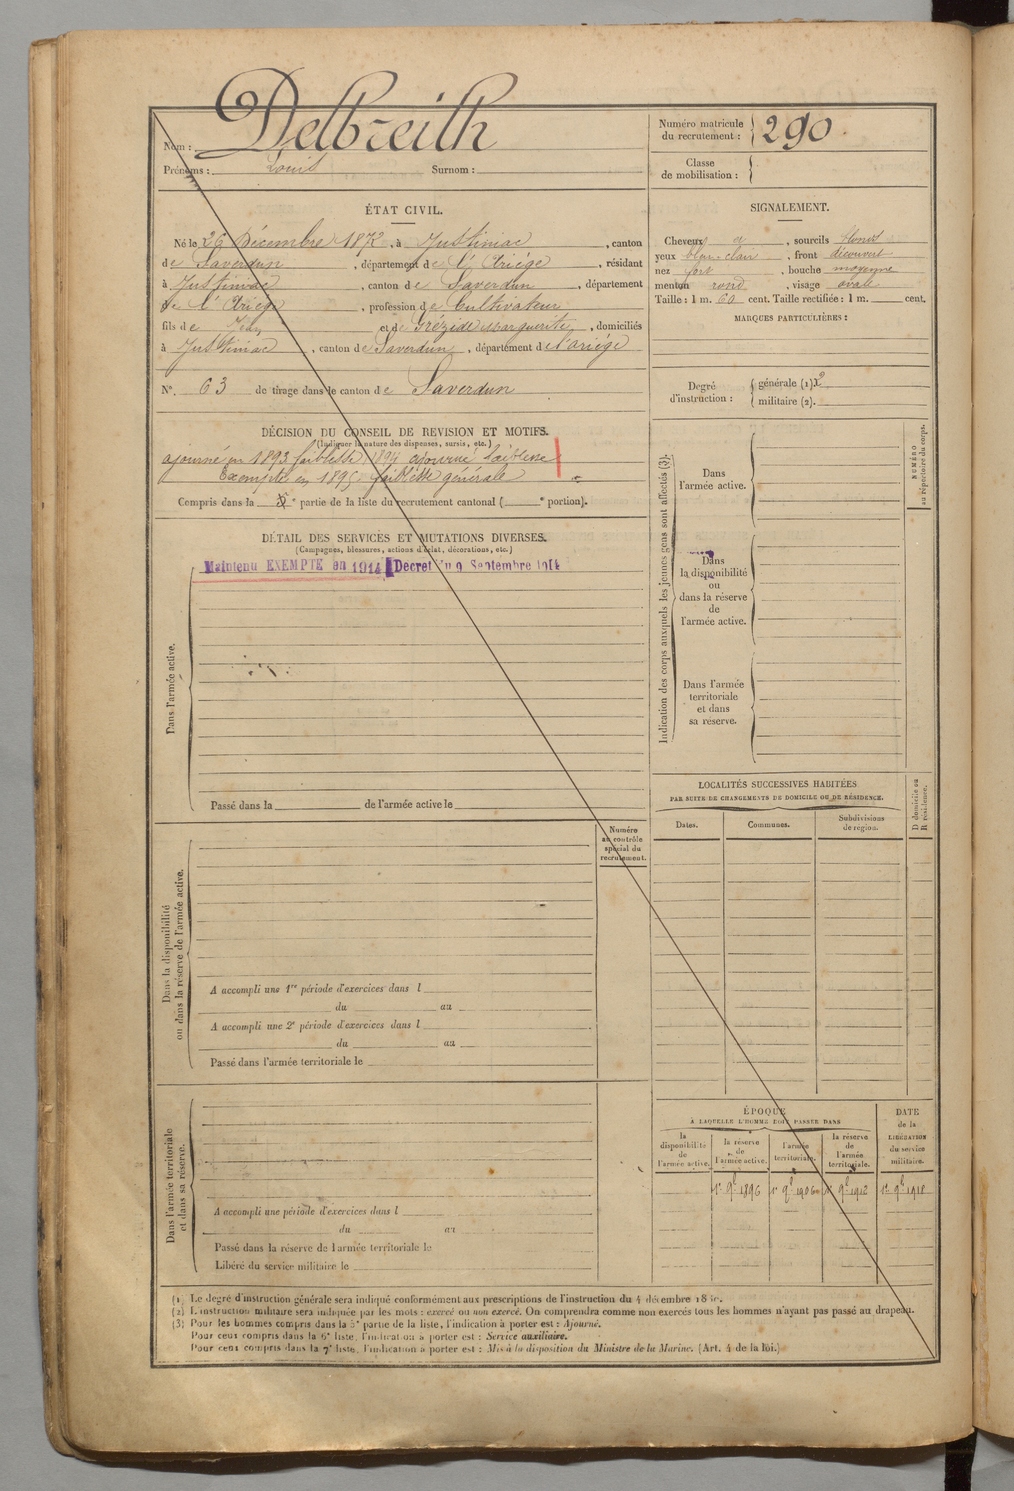 Delbreilh
Nom :
Prénoms : Louis Surnom :
Numéro matricule
du recrutement : 290
Classe
de mobilisation :
ÉTAT CIVIL.
Né le 26 Décembre 1872, à Justiniac, canton
de Saverdun, département de l'Ariège, résidant
à Justiniac, canton de Saverdun, département
de l'Ariège, profession de Cultivateur
fils de Jean et de Grézide Marguerite, domiciliés
à Justiniac, canton de Saverdun, département de l'ariège
N°. 63 de tirage dans le canton de Saverdun
SIGNALEMENT.
Cheveux, sourcils blonds
yeux bleu-clair, front découvert
nez fort, bouche moyenne
menton rond, visage ovale
Taille : 1 m. 60 cent. Taille rectifiée : 1 m. cent.
MARQUES PARTICULIÈRES :
Degré
d'instruction :
générale (1)
militaire (2).
DÉCISION DU CONSEIL DE REVISION ET MOTIFS.
(Indiquer la nature des dispenses, sursis, etc.)
ajourné en 1893 faiblesse, 1894 ajourné faiblesse
Exempté en 1895 faiblesse générale
Compris dans la e partie de la liste du recrutement cantonal ( e portion).
DÉTAIL DES SERVICES ET MUTATIONS DIVERSES.
(Campagnes, blessures, actions d'éclat, décorations, etc.)
Maintenu EXEMPTÉ en 1914 Décret du 9 Septembre 1914
Dans l'armée active.
Passé dans la de l'armée active le
Numéro
au contrôle
spécial du
recrutement.
Dans la disponibilité
ou dans la réserve de l'armée active.
A accompli une 1re période d'exercices dans l
du au
A accompli une 2e période d'exercices dans l
du au
Passé dans l'armée territoriale le
Dans l'armée territoriale
et dans sa réserve.
A accompli une période d'exercices dans l
du au
Passé dans la réserve de l'armée territoriale le
Libéré du service militaire le
Indication des corps auxquels les jeunes gens sont affectés (3).
NUMÉRO
au répertoire du corps.
Dans
l'armée active.
Dans
la disponibilité
ou
dans la réserve
de
l'armée active.
Dans l'armée
territoriale
et dans
sa réserve.
LOCALITÉS SUCCESSIVES HABITÉES
PAR SUITE DE CHANGEMENTS DE DOMICILE OU DE RÉSIDENCE.
D domicile ou
R résidence.
Dates. Communes. Subdivisions
de région.
ÉPOQUE
À LAQUELLE L'HOMME DOIT PASSER DANS
la
disponibilité
de
l'armée active.
la réserve
de
l'armée active.
l'armée
territoriale.
la réserve
de
l'armée
territoriale.
DATE
de la
LIBÉRATION
du service
militaire.
1er 9bre 1896 1er 9bre 1906 1er 9bre 1912 1er 9bre 1918
(1) Le degré d'instruction générale sera indiqué conformément aux prescriptions de l'instruction du 4 décembre
(2) L'instruction militaire sera indiquée par les mots : exercé ou non exercé. On comprendra comme non exercés tous les hommes n'ayant pas passé au drapeau.
(3) Pour les hommes compris dans la 5e partie de la liste, l'indication à porter est : Ajourné.
Pour ceux compris dans la 6e liste, l'indication à porter est : Service auxiliaire.
Pour ceux compris dans la 7e liste, l'indication à porter est : Mis à la disposition du Ministre de la Marine. (Art. 4 de la loi.)